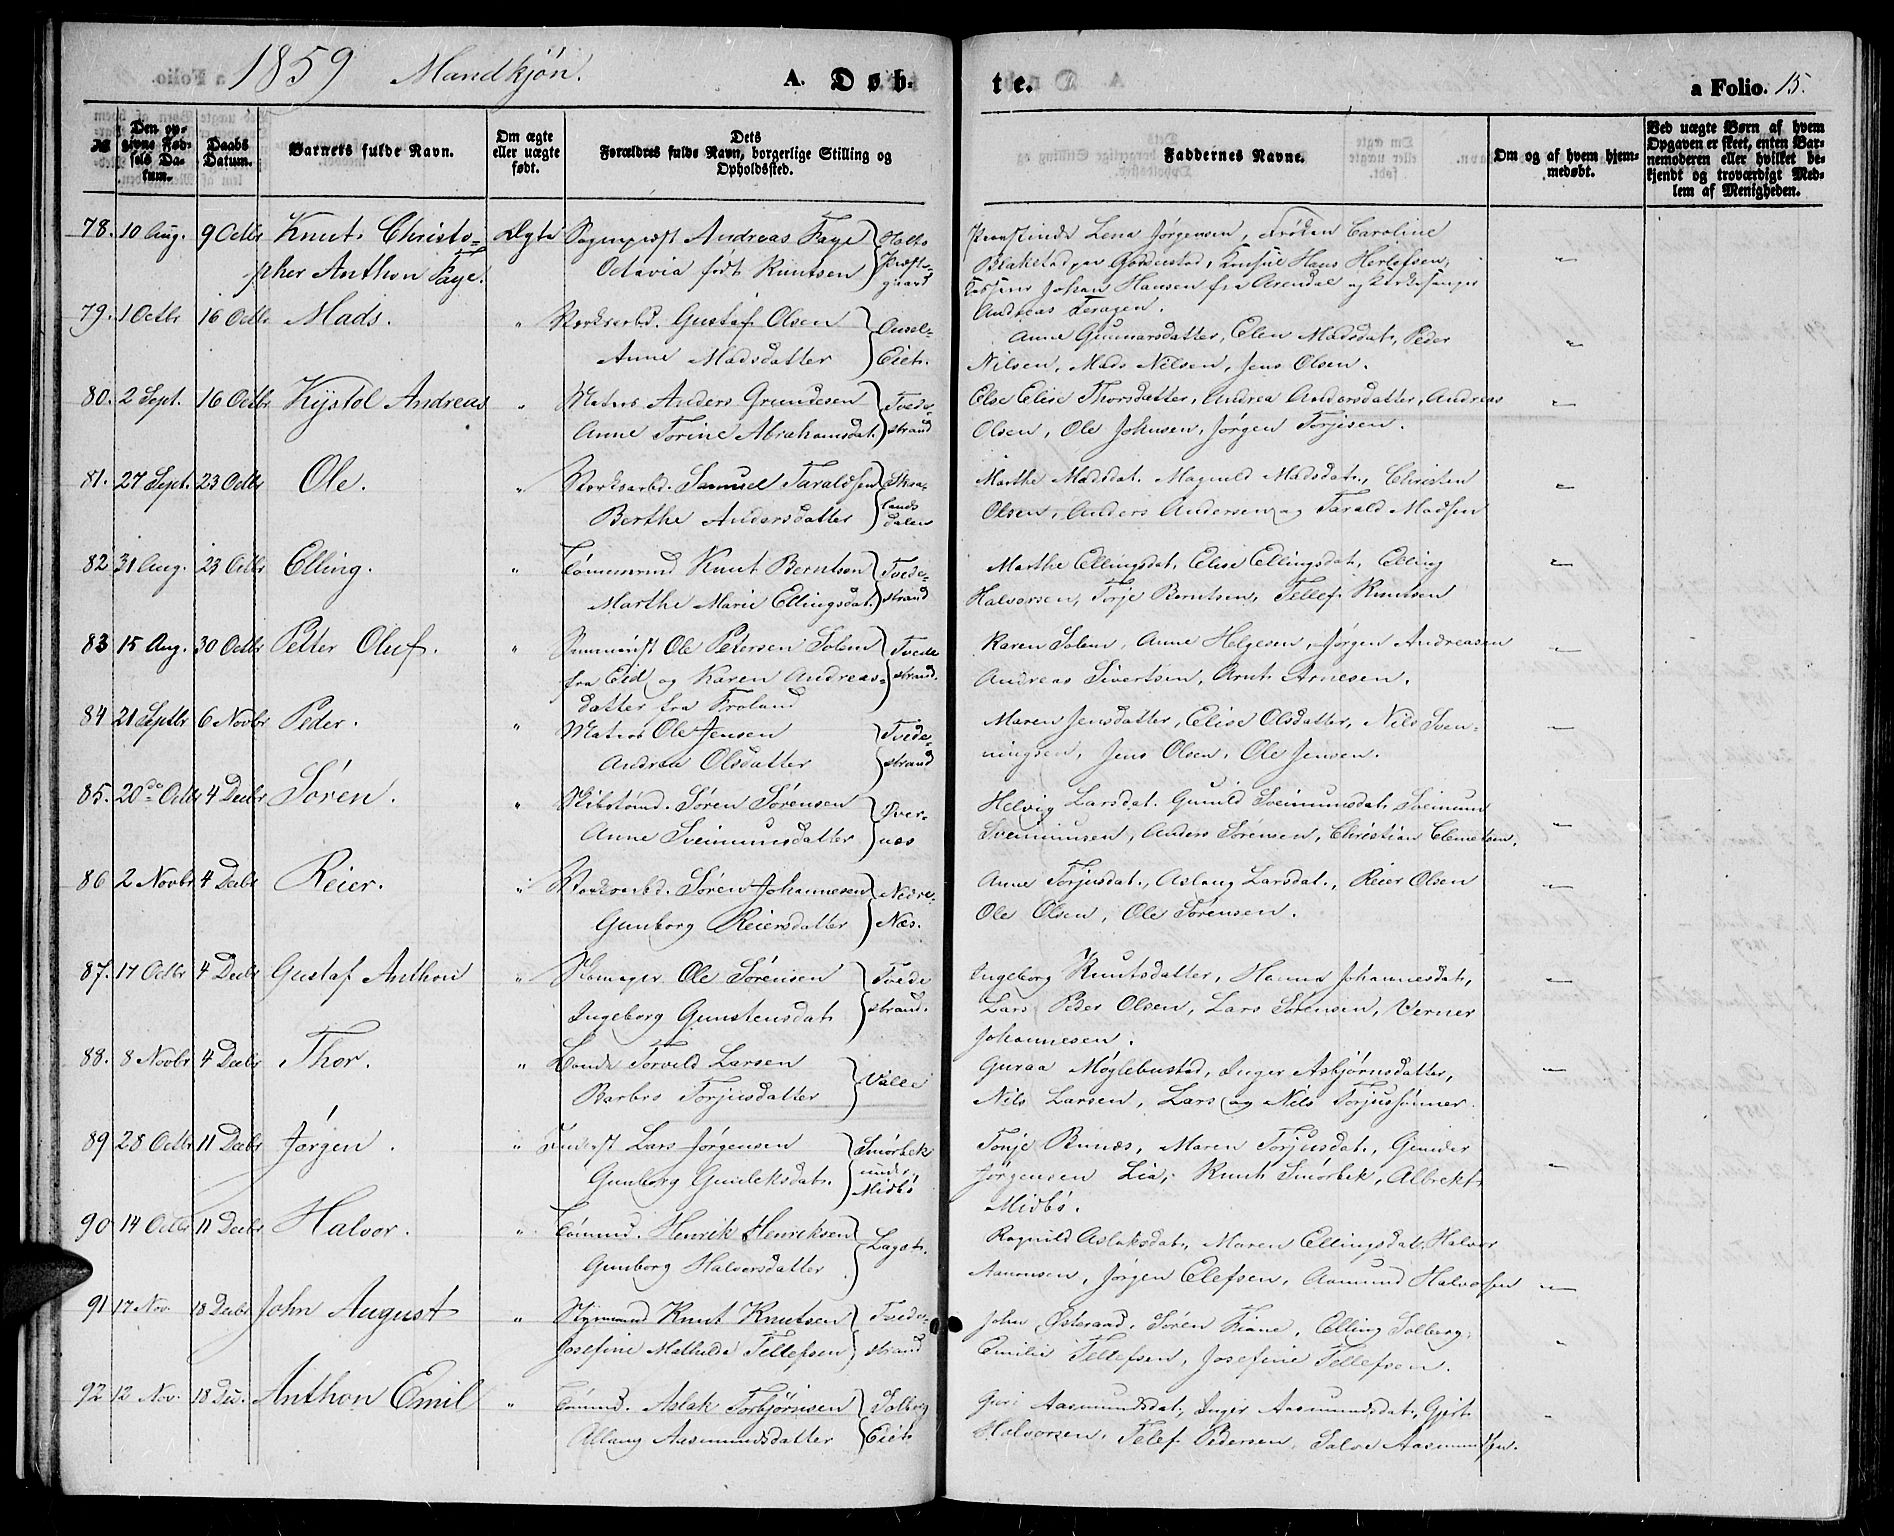 1859 Mandkjøn. A. Døb- te. a Folio. 15.
№ Den opgivne Fødsels Datum. Daabs Datum. Barnets fulde Navn. Om ægte eller uægte født. Dets Forældres fulde Navn, borgerlige Stilling og Opholdssted. Faddernes Navne. Om og af hvem hjemmedøbt. Ved uægte Børn af hvem Opgaven er skeet, enten Barnemoderen eller hvilket bekjendt og troværdigt Medlem af Menigheden.
78. 10 Aug. 9 Octbr Knut Christo- Ægte Sognepræst Andreas Faye Holts Lena Jørgensen, Frøken Caroline
pher Anthon Faye. Octavia født Knutsen Præste- gaard Konsul Hans Herlofsen,
Johan Hansen fra Arendal og Kirkesanger
Andreas
79. 1 Octbr 16 Octbr Mads. " Værksarbd. Gustaf Olsen Anne Gunnarsdatter, Elen Madsdat, Peder
Anne Madsdatter Eiet. Nilsen, Mads Nilsen, Jens Olsen.
80. 2 Sept. 16 Octbr Kjstol Andreas " Matros Anders Grundesen Tvede- Else Elise Thorsdatter, Andrea Andersdatter, Andreas
Anne Torine Abrahamsdat. strand Olsen, Ole Johnsen, Jørgen Torjesen.
81. 27 Sept. 23 Octbr Ole. " Værksarbd. Samuel Taraldsen Skaa- Marthe Madsdat. Magnild Madsdat., Christen
Berthe Andersdatter lands dalen Olsen, Anders Andersen og Tarald Madsen
82 31 Aug. 23 Octbr Elling. " Tømmermd Knut Berntsen Tvede- Marthe Ellingsdat, Elise Ellingsdat, Elling
Marthe Marie Ellingsdat. strand Halvorsen, Torje Berntsen, Tellef Knutsen
83 15 Aug. 30 Octbr Petter Oluf. " Ole Petersen Solem Tvede Karen Solem, Anne Helgesen, Jørgen Andreasen
fra Eid og Karen Andreas- strand. Andreas Sivertsen, Arnt Arnesen.
datter fra Froland
84 21 Septbr 6 Novbr Peder. " Matros Ole Jensen Tvede- Maren Jensdatter, Elise Olsdatter, Nils Sven-
Andrea Olsdatter strand ningsen, Jens Olsen, Ole Jensen.
85. 20de Octbr 4 Decbr Søren. " Skibstømd. Søren Sørensen Tver- Helvig Larsdat. Gunild Sveinunsdat. Sveinun
Anne Sveinunsdatter næs Sveinunsen, Anders Sørensen, Christian Clemetsen.
86 2 Novbr 4 Decbr Reier. " Værksarbd. Søren Johannesen Nedre- Anne Torjusdat., Aslaug Larsdat., Reier Olsen
Gunborg Reiersdatter Næs. Ole Olsen, Ole Sørensen.
87. 17 Octbr 4 Decbr Gustaf Anthon " Skomager Ole Sørensen Tvede Ingeborg Knutsdatter, Hanna Johannesdat,
Ingeborg Gunstensdat. strand. Lars Peder Olsen, Lars Sørensen, Verner
Johannesen.
88. 8 Novbr 4 Decbr Thor. " Bonde Torveld Larsen Valle Guraa Møglebustad, Inger Asbjørnsdatter,
Barbro Torjusdatter Nils Larsen, Lars og Nils Torjussønner.
89 28 Octbr 11 Decbr Jørgen. " Inderst Lars Jørgensen Smørbek Tonje Bunæs, Maren Torjusdat., Gunder
Gunborg Gundeksdat. under Midbø Jørgensen Lia, Knut Smørbek, Albrekt
Midbø.
90 14 Octbr 11 Decbr Halvor. " Tømmd. Henrik Henriksen Laget. Ragnild Aslaksdat., Maren Ellingsdat, Halvor
Gunborg Halvorsdatter Aanonsen, Jørgen Elefsen, Aamund Halvorsen
91 17 Nov. 18 Decbr John August " Styrmand Knut Knutsen Tvede- John Østeraad, Søren Fiane, Elling Solberg,
Josefine Mathilde Tellefsen strand Emilie Tellefsen, Josefine Tellefsen.
92 12 Nov. 18 Dec. Anthon Emil " Tømmd. Aslak Torbjørnsen Solberg Guri Aasmundsdat, Inger Aasmundsdat, Gjert
Aslaug Aasmundsdatter Eiet Halvorsen, Telef Pedersen, Salve Aasmundsen.